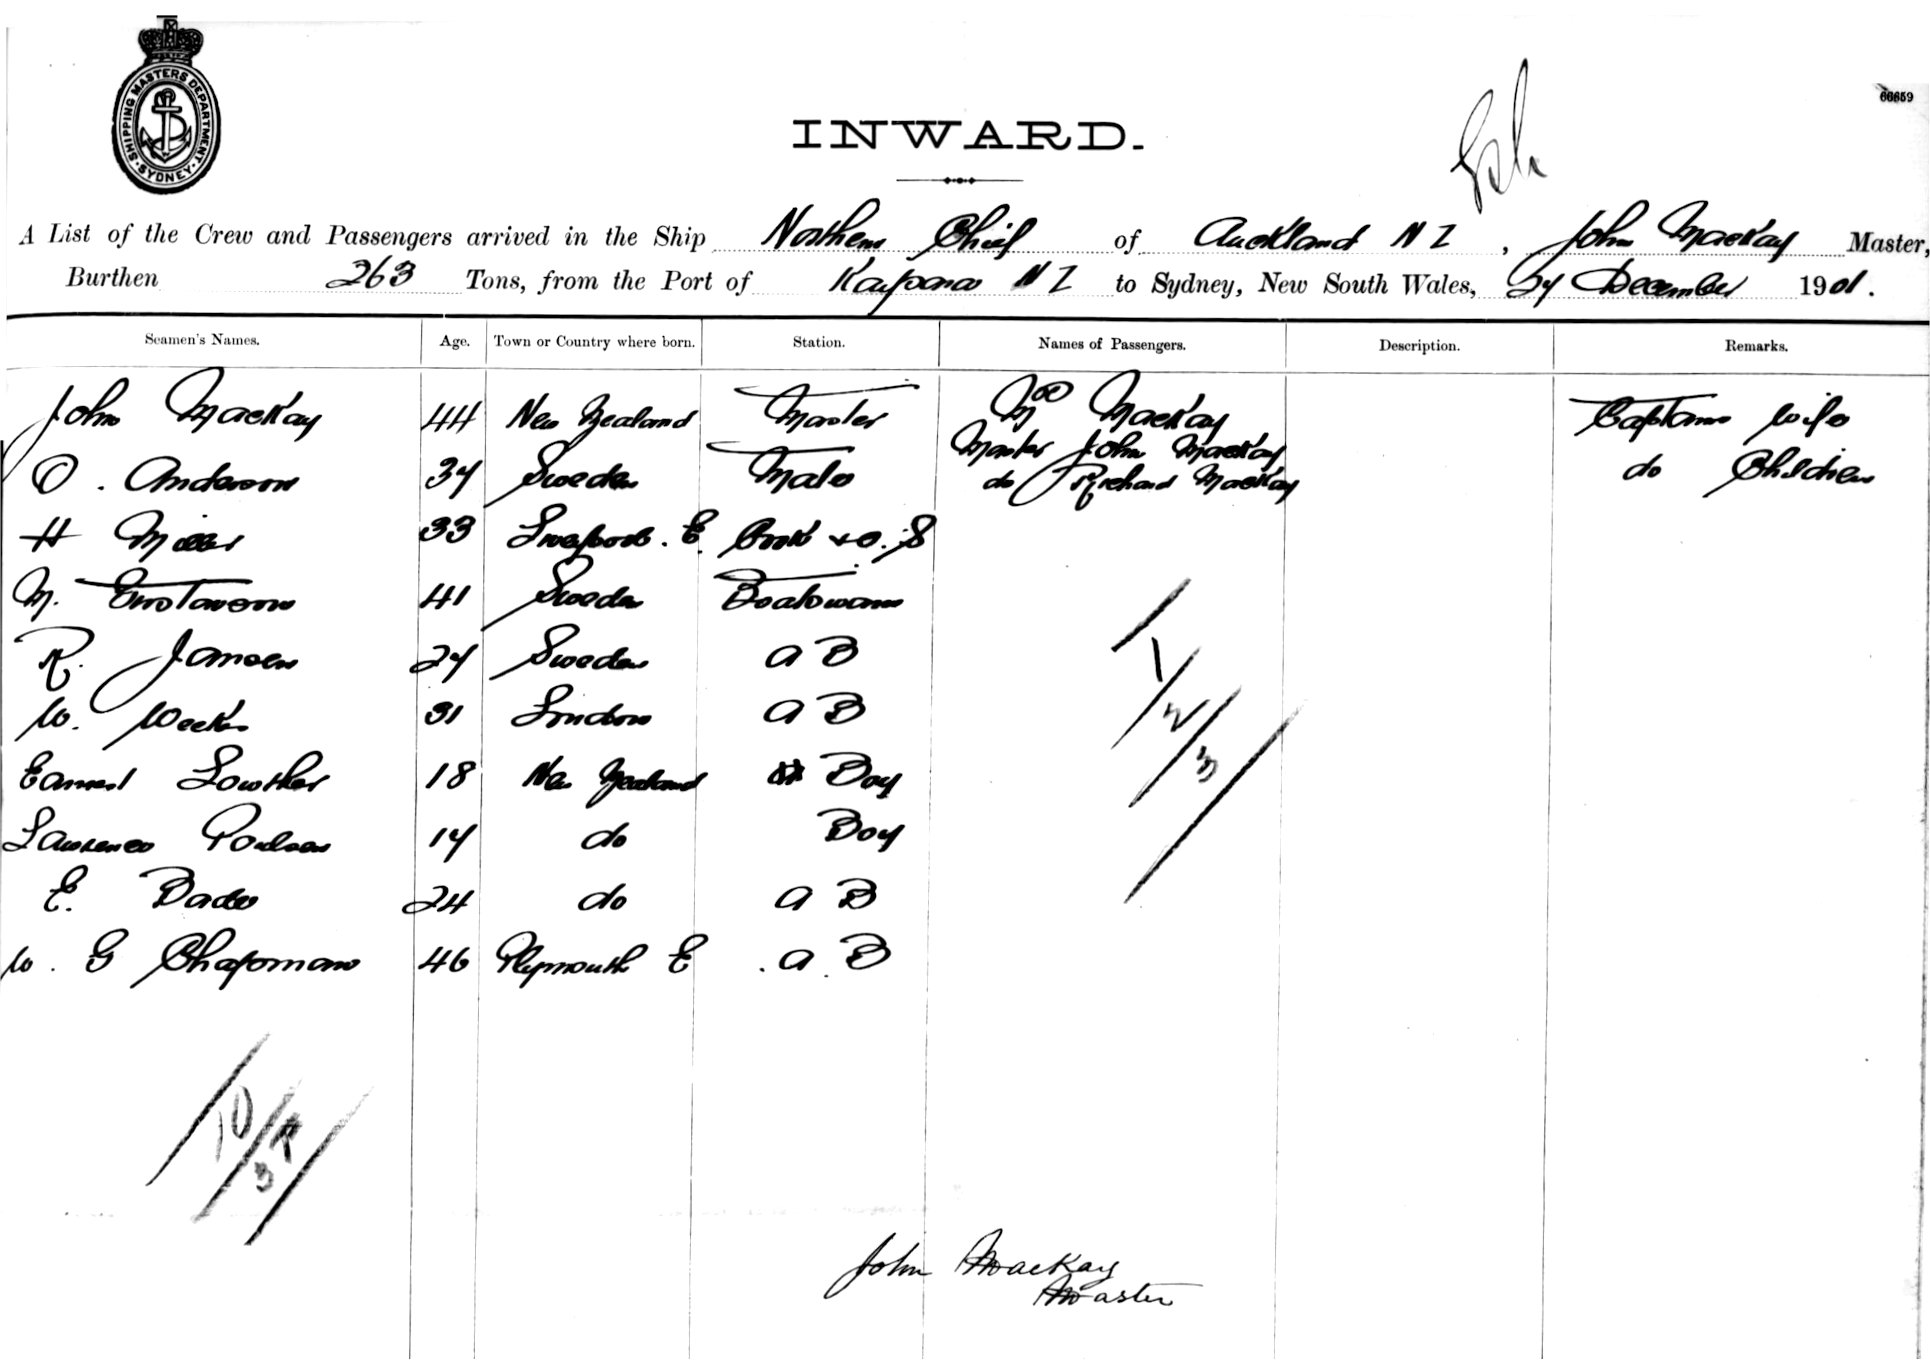 SHIPPING MASTERS DEPARTMENT
SYDNEY
66659
INWARD.
A List of the Crew and Passengers arrived in the Ship Northern Chief of Auckland N Z, John MacKay Master,
Burthen 263 Tons, from the Port of Kaipara N Z to Sydney, New South Wales, 24 December 1901.
Seamen's Names. Age. Town or Country where born. Station. Names of Passengers. Description. Remarks.
John MacKay 44 New Zealand Master Mrs MacKay Captains wife
Master John MacKay
O. Anderson 34 Sweden Mate do Richard MacKay do Children
H Miller 33 Liverpool. E. Cook & O.S
M. Gustavson 41 Sweden Boatswain
R. Jansen 24 Sweden A B
W. Weeks 31 London A B
Earnest Lowther 18 New Zealand Boy
Lawrence Poulsen 14 do Boy
E. Bade 24 do A B
W. G Chapman 46 Plymouth E A. B
1/2/3
10/3
John MacKay
Master